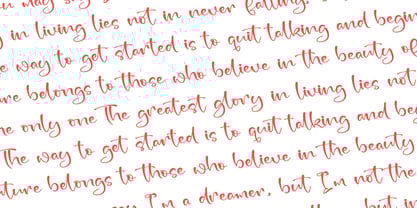 may say
y in living lies not in never falling.
e way to get started is to quit talking and begin
ure belongs to those who believe in the beauty of
he only one The greatest glory in living lies not
The way to get started is to quit talking and be
uture belongs to those who believe in the beauty
I'm a dreamer, but I'm not the